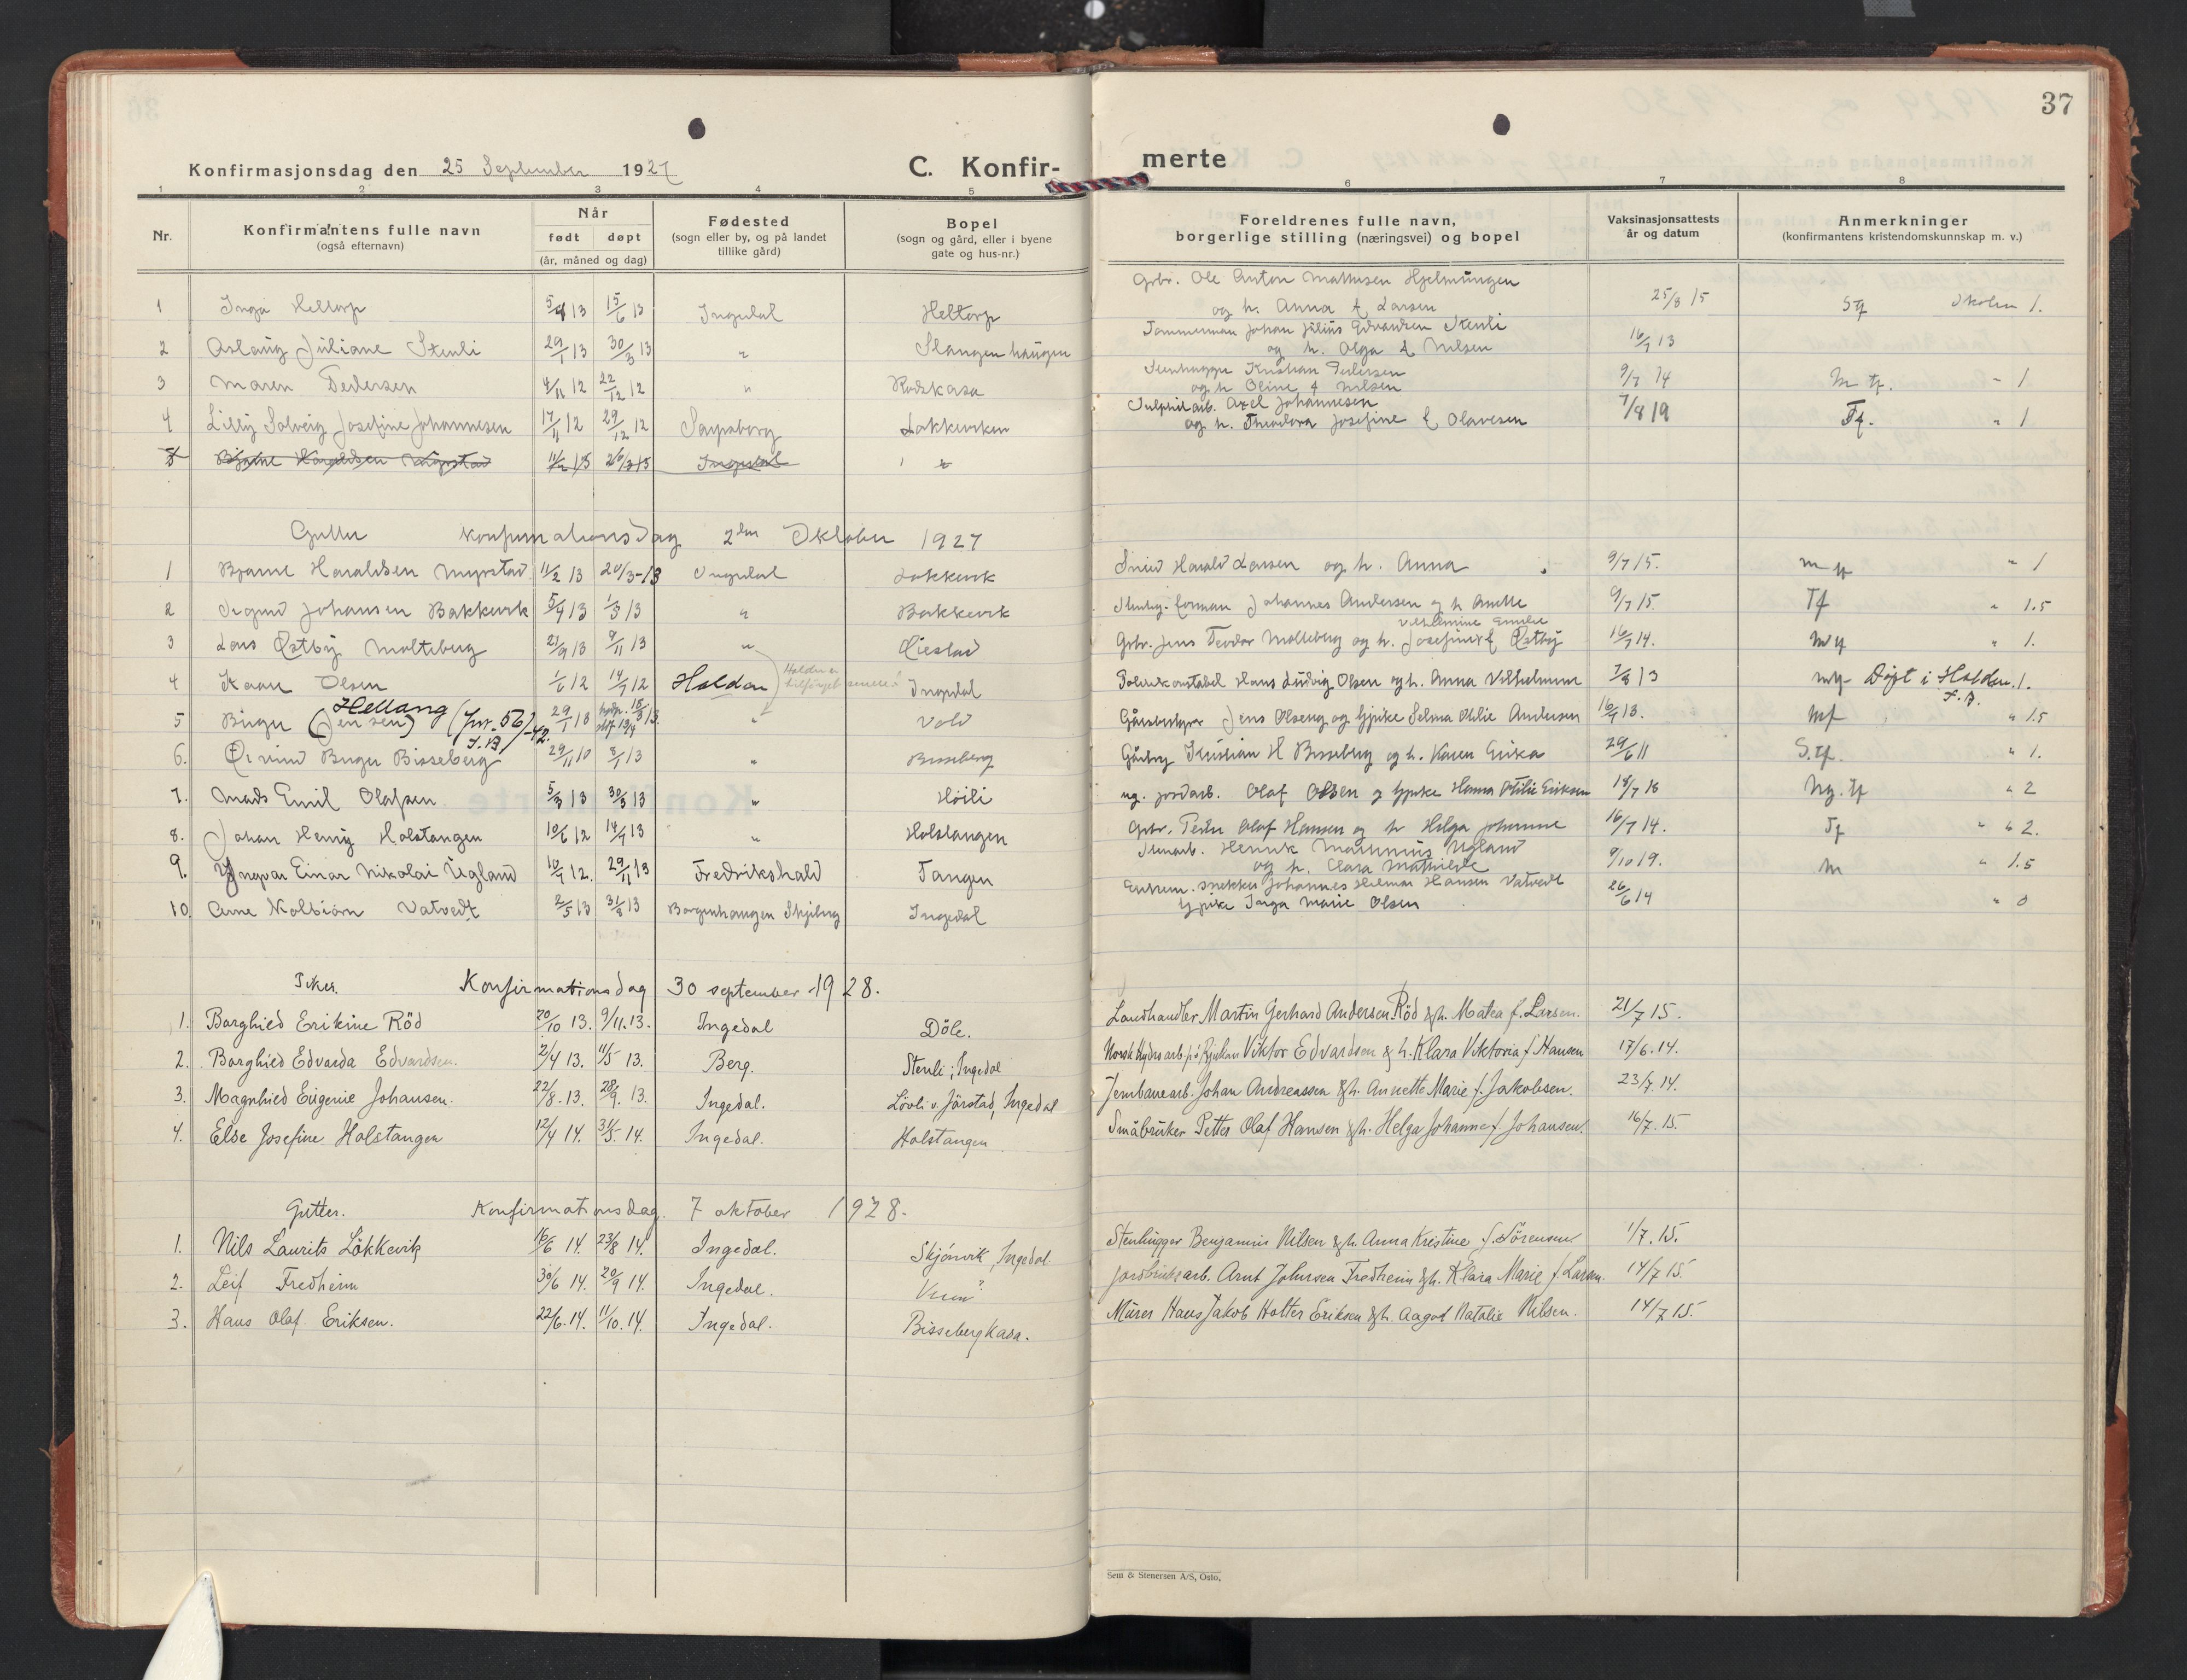 37
Konfirmasjonsdag den 25 September 1927
C. Konfir-
merte
1 2 3 4 5 6 7 8
Nr.
Konfirmantens fulle navn
(også efternavn)
Når
født døpt
(år, måned og dag)
Fødested
(sogn eller by, og på landet
tillike gård)
Bopel
(sogn og gård, eller i byene
gate og hus-nr.)
Foreldrenes fulle navn,
borgerlige stilling (næringsvei) og bopel
Vaksinasjonsattests
år og datum
Anmerkninger
(konfirmantens kristendomskunnskap m. v.)
Grbr. Ole Anton Mathisen Hjelmungen
1 Inga Heltorp 15/6 13 Ingedal Heltorp og h. Anna f Larsen 25/8 15 Skolen 1.
Tømmermann Johan Julius Edvardsen Stenli
2 Aslaug Juliane Stenli 29/1 13 30/3 13 " Slangenhaugen og h. Olga f Nilsen 16/7 13
Stenhugger Kristian Pedersen
3 Maren Pedersen 4/11 12 22/12 12 " Rødskasa og h Oline f Nilsen 9/7 14 M tf. " 1
Sulphitarb. Axel Johannesen
4 Lilly Solveig Josefine Johannesen 17/11 12 29/12 12 Sarpsborg Løkkevken og h. Theodora Josefine f Olavesen 7/8 19 Tf. " 1
5 Bjarne Haraldsen Myrstad Ingedal "
Gutter Konfirmationsdag 2den Oktober 1927
1 Bjarne Haraldsen Myrstad 11/2 13 20/3-13 Ingedal Løkkevik Smed Harald Larsen og h. Anna 9/7 15. " 1
2 Sigurd Johansen Bakkevik 5/4 13 1/5 13 " Bakkevik Stenhug. forman Johannes Andersen og h Anette 9/7 15. Tf " 1.5
Vilhelmine Emelie
3 Lars Østby Molteberg 21/9 13 9/11 13 " Øiestad Grbr. Jens Teodor Molteberg og h. Josefine f Østby 16/7 14. " 1.
4 Kaare Olsen 1/6 12 14/7 12 Halden Ingedal Politikonstabel Hans Ludvig Olsen og h. Anna Vilhelmine 7/8 13 Døpt i Halden. 1.
Halden er tilføyet senere!
Hellang
5 Birger (Jensen) (jnr. 56)-42. 29/1 13 hjdp. 15/3 13. " Vold Gårdsbestyrer Jens Olseng og hpike Selma Otilie Andersen 16/7 13. Mf " 1.5
6. Øivind Birger Bisseberg 29/11 10 8/1 13 " Bisseberg Gårdbr Kristian H Bisseberg og h. Karen Erika 29/6 11 S.tf. " 1.
7. Mads Emil Olafsen 5/3 13 30/3 13 " Høili ug. jordarb. Olaf Olsen og hpike Hanna Otilie Eriksen 18/7 16 Ng. tf " 2
8. Johan Henry Holstangen 10/6 12 14/9 13 " Holstangen Grbr. Peder Olaf Hansen og h Helga Johanne 16/7 14. Tf " 2.
Stenarb. Henrik Marinius Ugland
9. Yngvar Einar Nikolai Ugland 10/7 12. 29/11 13 Fredrikshald Tangen og h. Clara Mathilde 9/10 19. M " 1.5
Enkem. snekker Johannes Hilmar Hansen Vatvedt
10 Arne Kolbiørn Vatvedt 2/5 13 31/8 13 Borgenhaugen Skjeberg Ingedal hpike Inga Marie Olsen 26/6 14 " 0
Piker. Konfirmationsdag 30 september 1928.
1. Borghied Erikine Röd 20/10 13. 9/11.13. Ingedal Döle. Landhandler Martin Gerhard Andersen Röd & h. Matea f. Larsen. 21/7 15.
2. Borghied Edvarda Edvardsen. 2/4 13. 11/5 13. Berg. Stenli; Ingedal Norsk Hydro arb. på Rjukan Viktor Edvardsen & h. Klara Viktoria f. Hansen 17/6.14.
3. Magnhied Eugenie Johansen. 22/8.13. 28/9.13. Ingedal. Lövli v. Jörstad, Ingedal Jernbanearb. Johan Andreassen & h. Annette Marie f. Jakobsen. 23/7.14.
4. Else Josefine Holstangen 12/4 14. 31/5.14. Ingedal. Holstangen Småbruker Petter Olaf Hansen & h. Helga Johanne f. Johansen. 16/7.15.
Gutter. Konfirmationsdag. 7 oktober 1928.
1. Nils Laurits Lökkevik 16/6 14. 23/8 14. Ingedal. Skjörvik, Ingedal. Stenhugger Benjamin Nilsen & h. Anna Kristine f. Sörensen 1/7.15.
2. Leif Fredheim 30/6 14. 20/9 14. Ingedal. Jordbruksarb. Arnt Johnsen Fredheim & h. Klara Marie f. Larsen. 14/7 15.
3. Hans Olaf Eriksen. 22/6.14. 11/10.14. Ingedal. Bissebergkasa. Murer Hans Jakob Holter Eriksen & h. Aagot Natalie Nilsen. 14/7 15.
Sem & Stenersen A/S, Oslo.